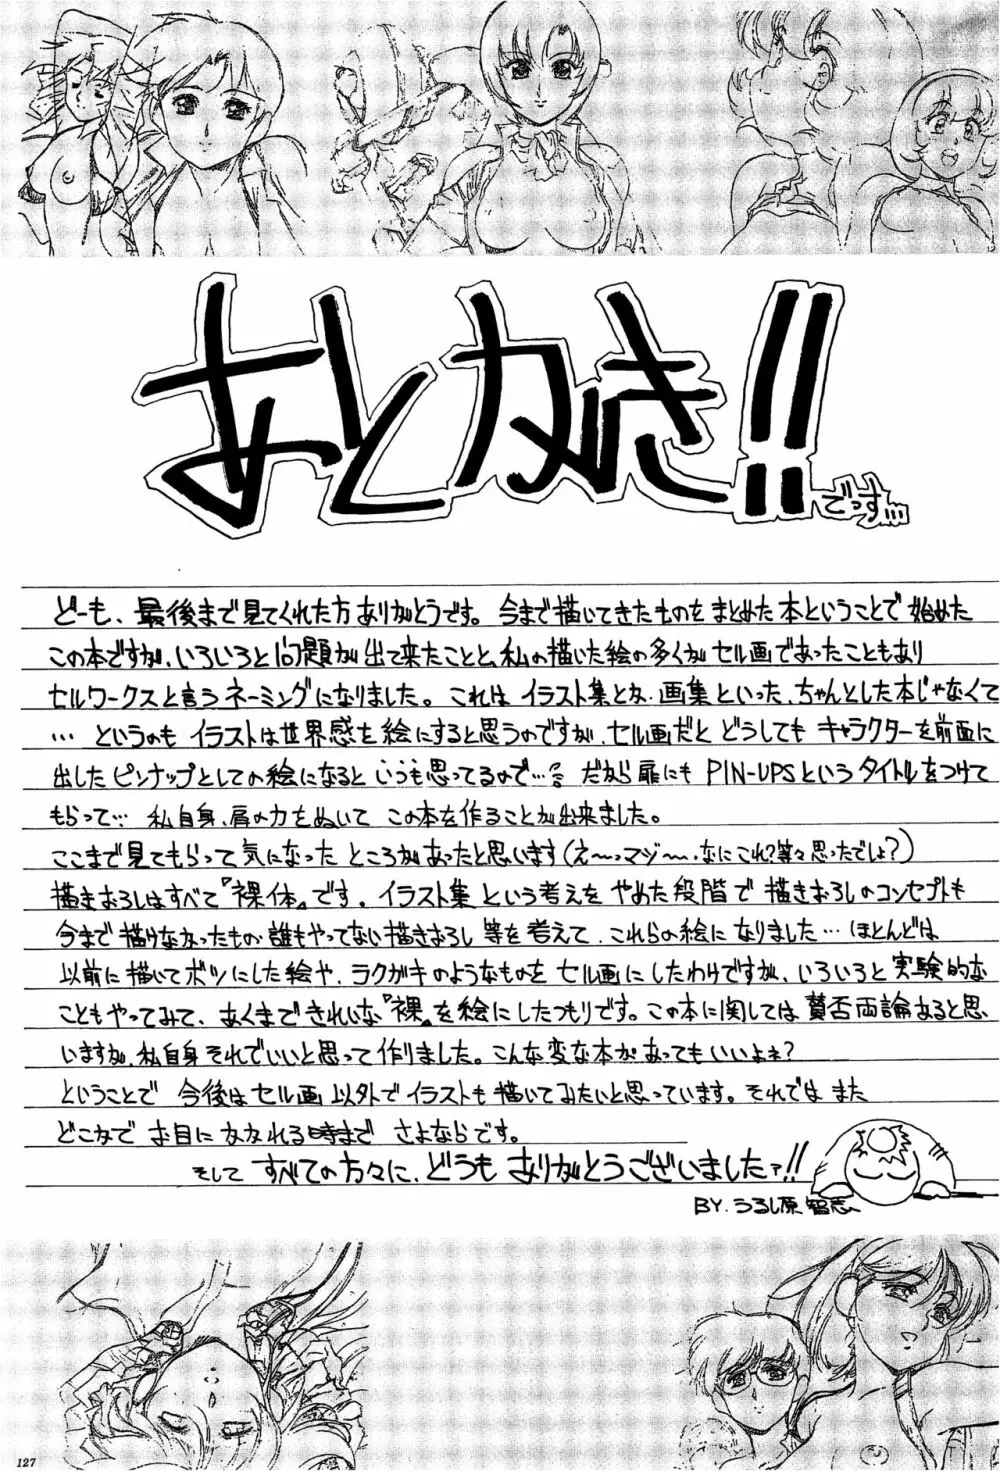 あとがき!!
でっす…
どーも、最後まで見てくれた方ありがとうです。今まで描いてきたものをまとめた本ということで始めた
この本ですが、いろいろと問題が出て来たことと、私の描いた絵の多くがセル画であったこともあり
セルワークスと言うネーミングになりました。これはイラスト集とか、画集といった、ちゃんとした本じゃなくて
… というのもイラストは世界感を絵にすると思うのですが、セル画だとどうしてもキャラクターを前面に
出したピンナップとしての絵になるといつも思ってるので…。だから扉にもPIN-UPSというタイトルをつけて
もらって… 私自身、肩の力をぬいてこの本を作ることが出来ました。
ここまで見てもらって気になったところがあったと思います(え〜っマジ〜、なにこれ?等々思ったでしょ?)
描きおろしはすべて『裸体』です。イラスト集という考えをやめた段階で描きおろしのコンセプトも
今まで描けなかったもの・誰もやってない描きおろし等を考えて、これらの絵になりました…ほとんどは
以前に描いてボツにした絵や、ラクガキのようなものをセル画にしたわけですが、いろいろと実験的な
こともやってみて、あくまできれいな『裸』を絵にしたつもりです。この本に関しては賛否両論あると思
いますが、私自身それでいいと思って作りました。こんな変な本があってもいいよネ?
ということで今後はセル画以外でイラストも描いてみたいと思っています。それではまた
どこかでお目にかかれる時までさよならです。
そしてすべての方々に、どうもありがとうございましたァ!!
BY.うるし原智志
127